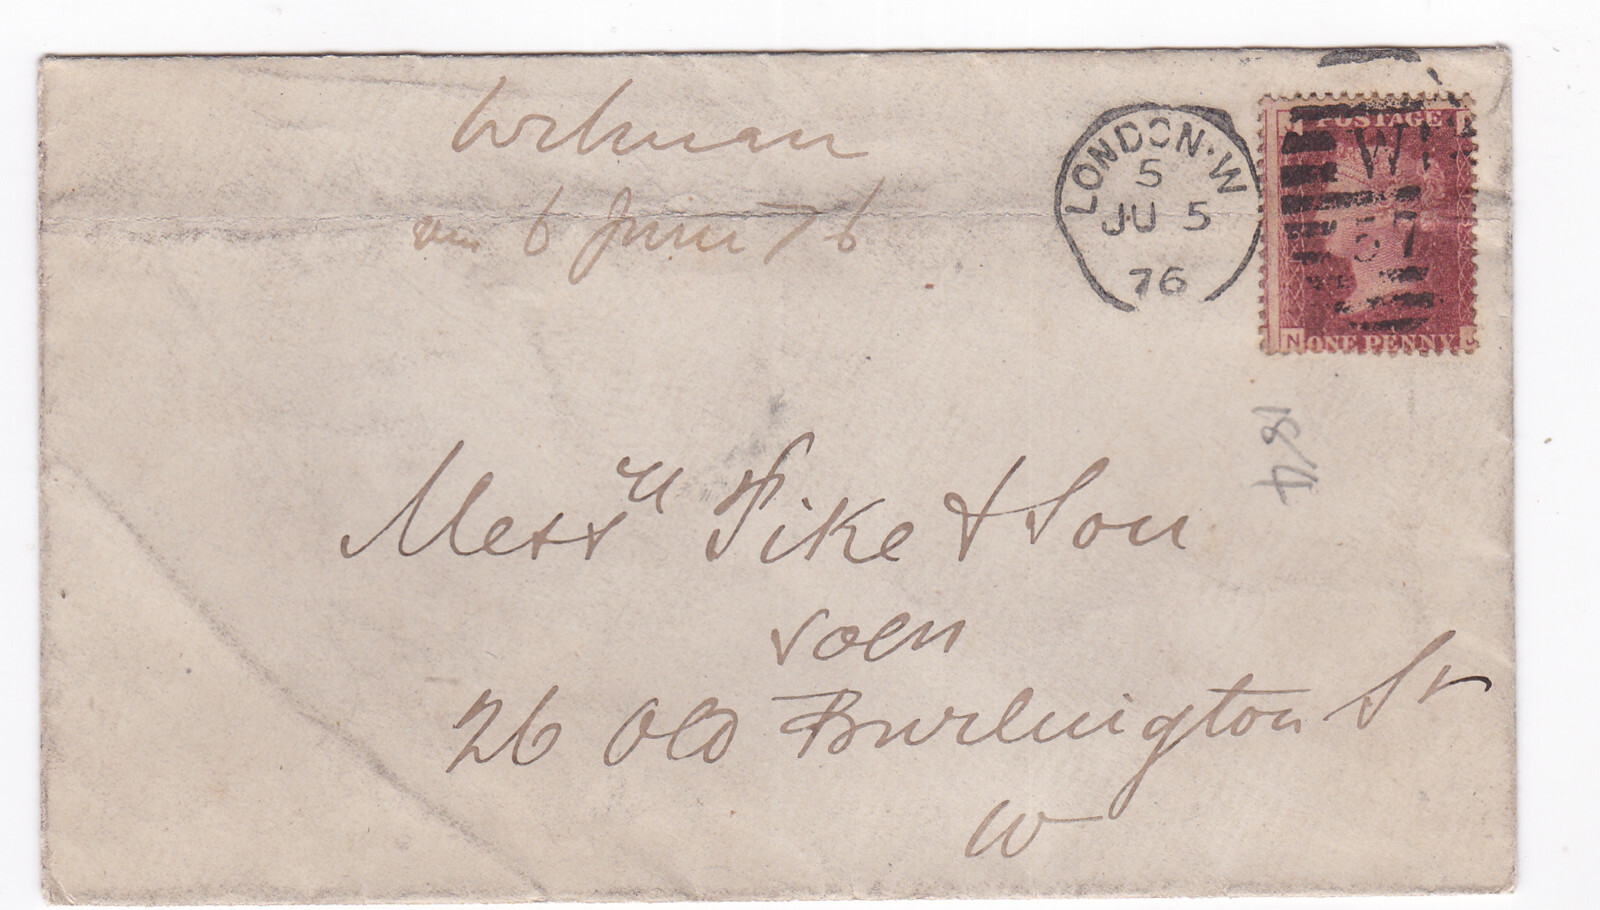 6 June 76
LONDON · W
5
JU 5
76
POSTAGE
W
57
N ONE PENNY
184
Mess Pike & Son
26 Old Burlington St
W